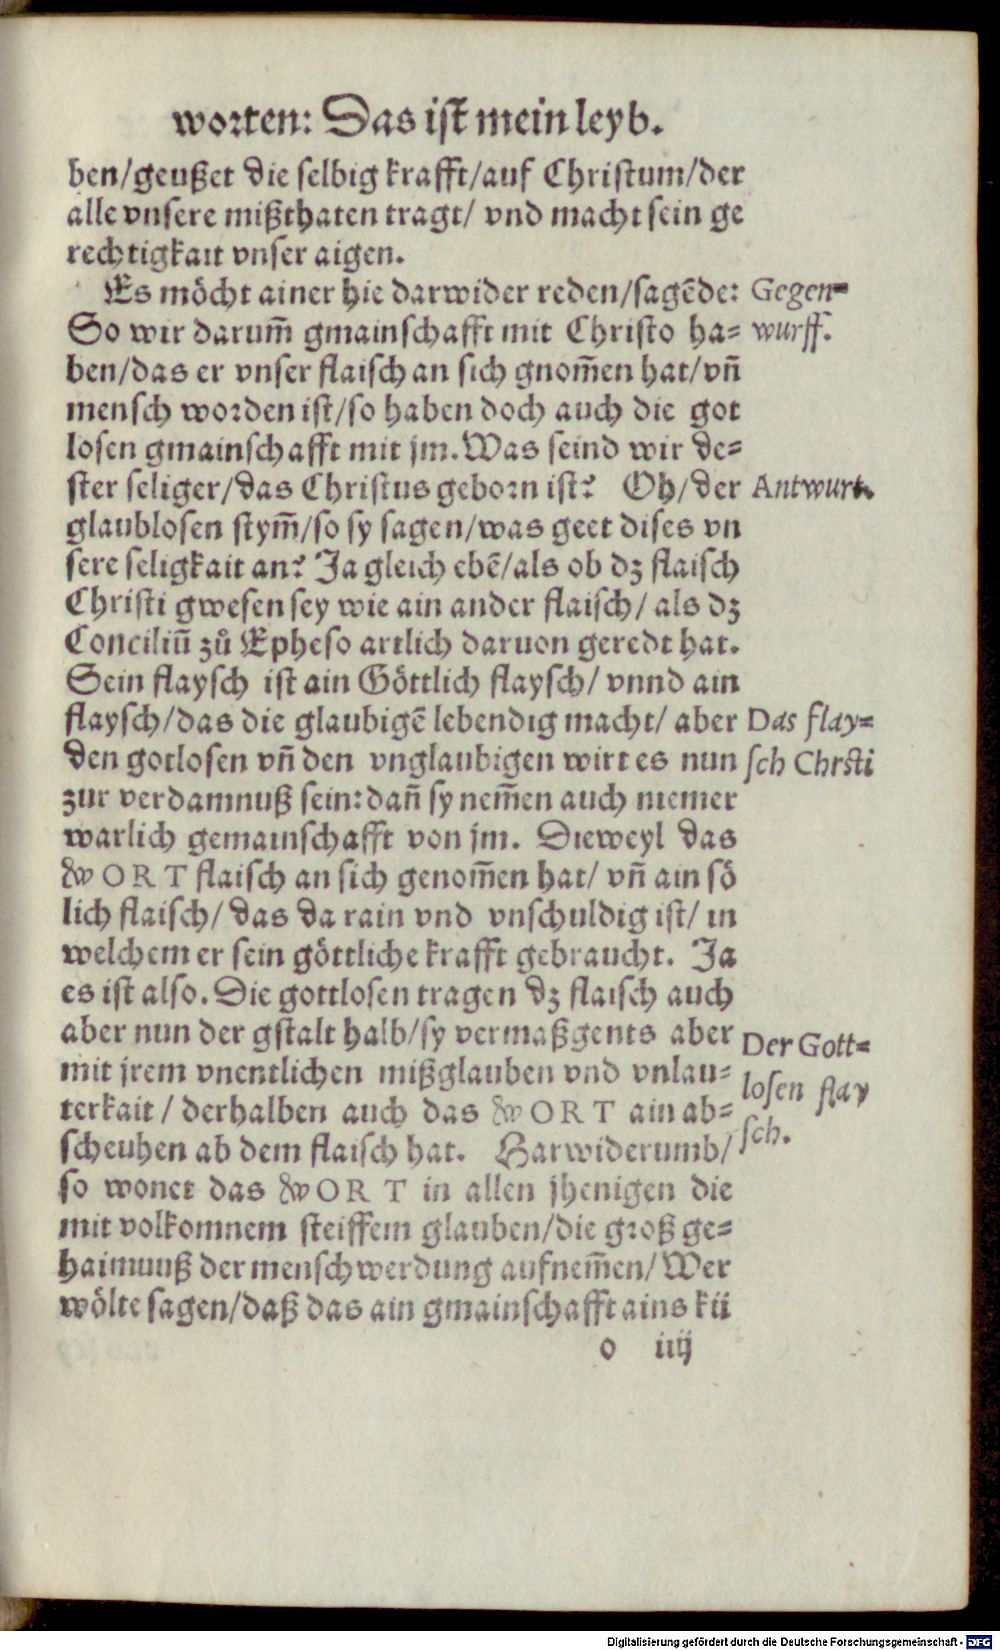 worten: Das iſt mein leyb.
ben/geußet die ſelbig krafft/auf Chriſtum/der
alle vnſere mißthaten tragt/ vnd macht ſein ge
rechtigkait vnſer aigen.
Es möcht ainer hie darwider reden/ſagēde: Gegen=
So wir darum̄ gmainſchafft mit Chriſto ha= wurff.
ben/das er vnſer flaiſch an ſich gnom̄en hat/vn̄
menſch worden iſt/ſo haben doch auch die got
loſen gmainſchafft mit jm. Was ſeind wir de=
ſter ſeliger/das Chriſtus geborn iſt? Oh/der Antwurt.
glaubloſen ſtym̄/ſo ſy ſagen/was geet diſes vn
ſere ſeligkait an? Ja gleich ebē/als ob dz flaiſch
Chriſti gweſen ſey wie ain ander flaiſch/ als dz
Conciliū zů Epheſo artlich daruon geredt hat.
Sein flayſch iſt ain Göttlich flayſch/ vnnd ain
flayſch/das die glaubigē lebendig macht/ aber Das flay=
den gotloſen vn̄ den vnglaubigen wirt es nun ſch Chrſti
zur verdamnuß ſein: dan̄ ſy nem̄en auch niemer
warlich gemainſchafft von jm. Dieweyl das
WORT flaiſch an ſich genom̄en hat/ vn̄ ain ſö
lich flaiſch/ das da rain vnd vnſchuldig iſt/ in
welchem er ſein göttliche krafft gebraucht. Ja
es iſt alſo. Die gottloſen tragen dz flaiſch auch
aber nun der gſtalt halb/ſy vermaßgents aber Der Gott=
mit jrem vnentlichen mißglauben vnd vnlau= loſen flay
terkait / derhalben auch das WORT ain ab= ſch.
ſcheuhen ab dem flaiſch hat. Harwiderumb/
ſo wonet das WORT in allen jhenigen die
mit volkomnem ſteiffem glauben/die groß ge=
haimnuß der menſchwerdung aufnem̄en/ Wer
wölte ſagen/daß das ain gmainſchafft ains kü
o iiij
Digitalisierung gefördert durch die Deutsche Forschungsgemeinschaft - DFG